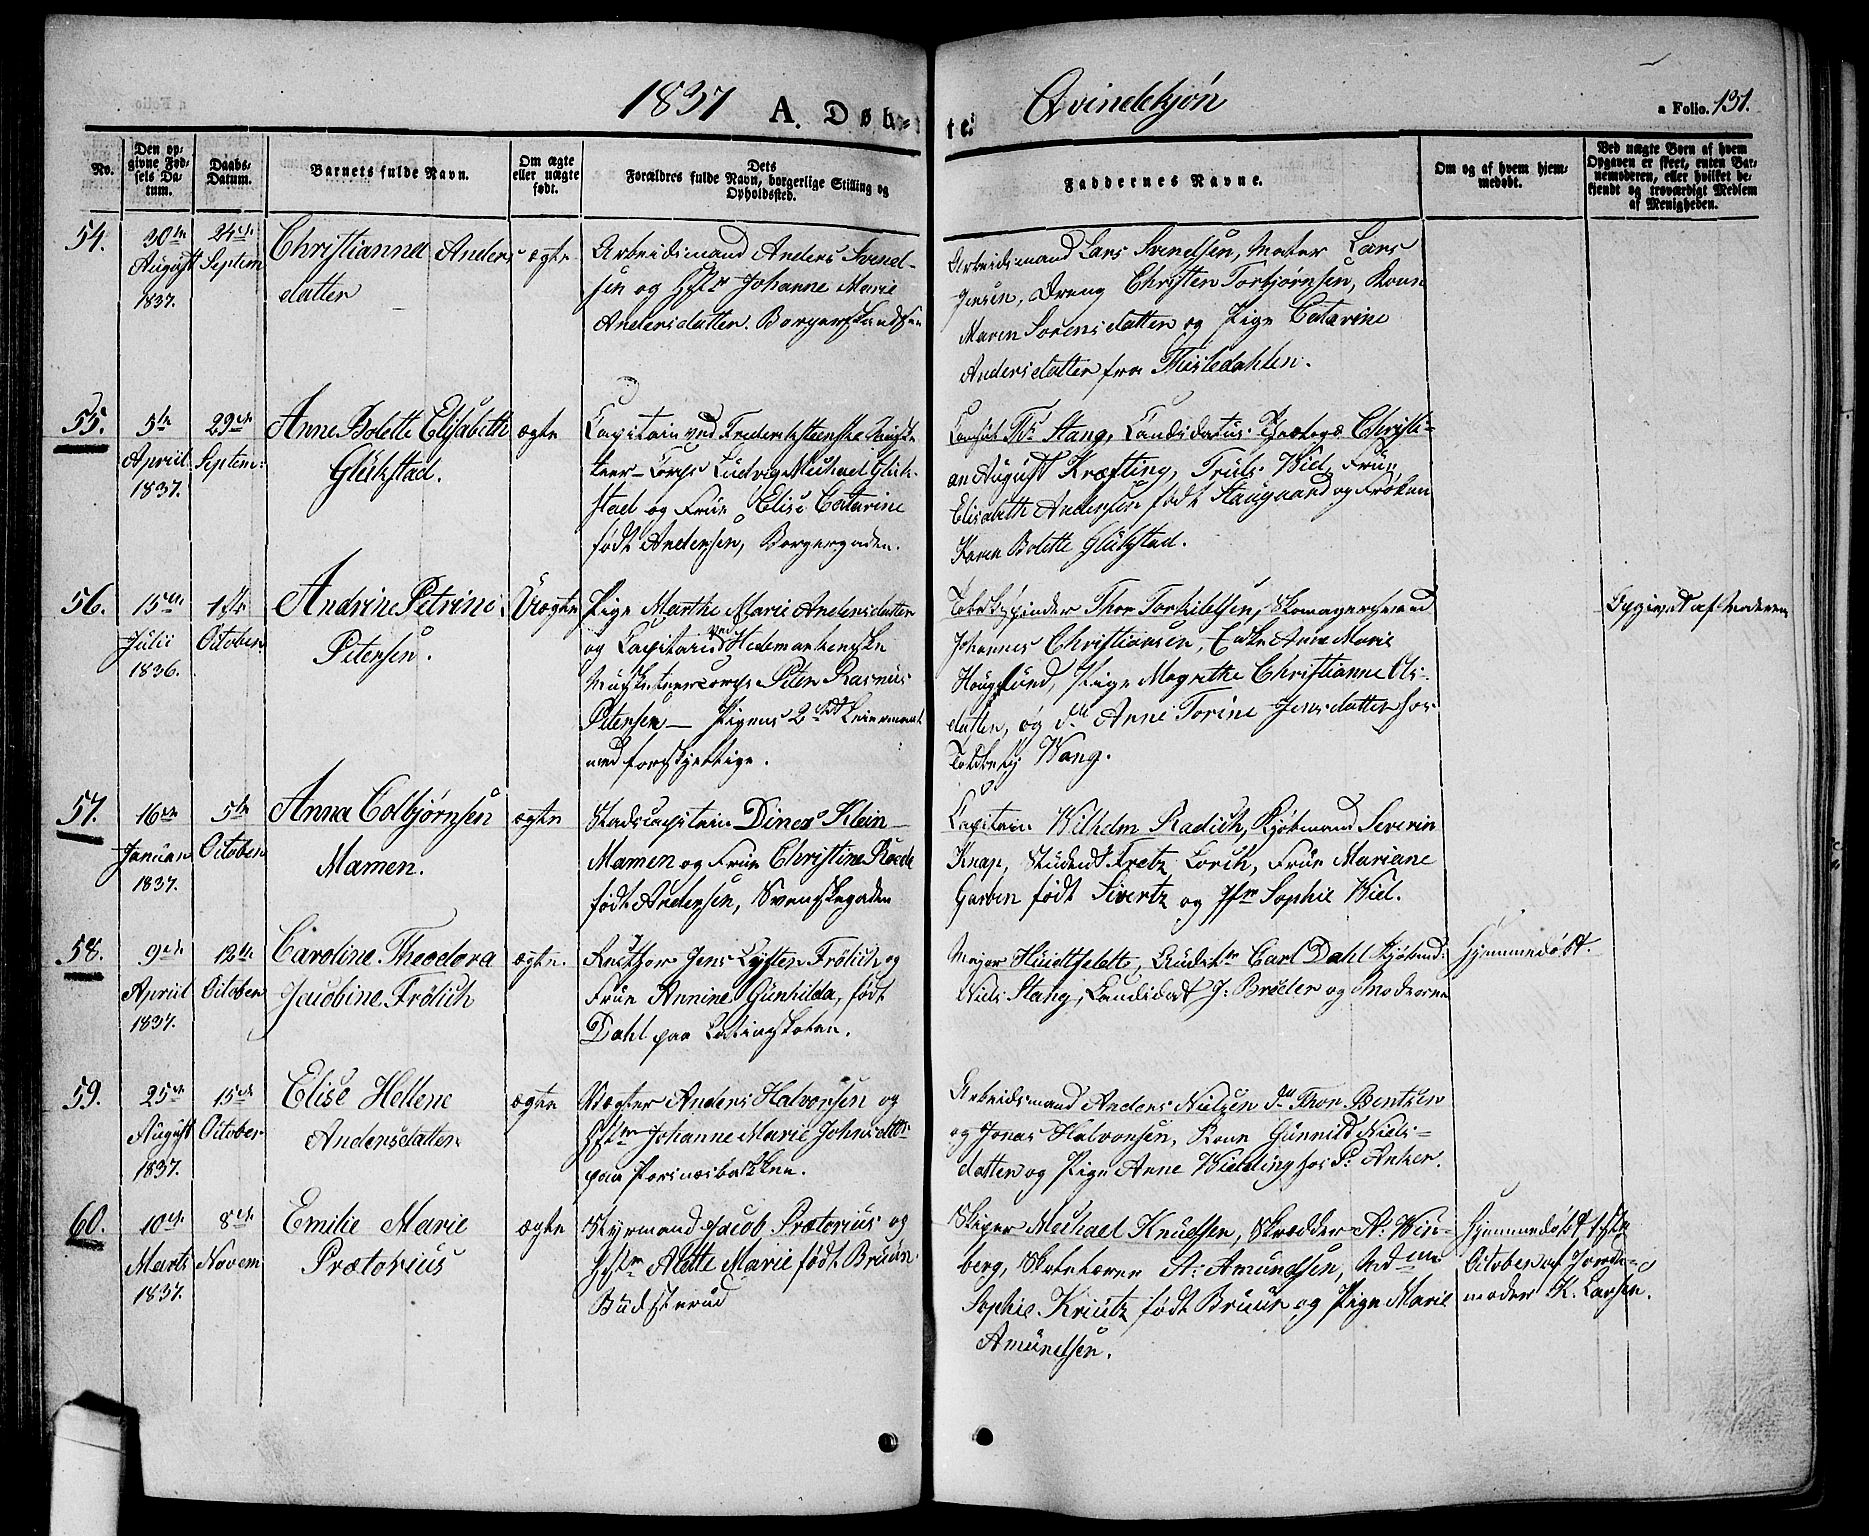 1837 A. Døb-
te. Qvindekjøn
a Folio. 131.
No.
Den op-
givne Fød-
sels Da-
tum.
Daabs-
Datum.
Barnets fulde Navn.
Om ægte
eller uægte
født.
Dets
Forældres fulde Navn, borgerlige Stilling og
Opholdssted.
Faddernes Navne.
Om og af hvem hjem-
medøbt.
Ved uægte Børn af hvem
Opgaven er skeet, enten Bar-
nemoderen, eller hvilket be-
kjendt og troværdigt Medlem
af Menigheden.
54.
30te
August
1837.
24de
Septem
Christianna Anders
datter
ægte
Arbeidsmand Anders Svend-
sen og Hstr Johanne Marie
Andersdatter. Borgerskandsen
Arbeidsmand Lars Svendsen, Lars
Jensen, Dreng Christen Torbjørnsen, Kone
Maren Sørensdatter og Pige Catarine
Andersdatter fra Tistedahlen.
55.
5te
April
1837.
29de
Septem:
Anne Bolette Elisabeth
Glükstad.
ægte
Capitain ved Frederiksteenske Muske-
teer-Corps Ludvig Michael Glük-
stad og Frue Elise Catarine
født Andersen, Borgergaden.
Consul Ths Stang, Candidatus Christi-
an August Kræfting, Truls Wiel, Frue
Elisabeth Andersen født Stausgaard og Frøken
Karen Bolette Glükstad.
56.
15de
Julii
1836.
1ste
October
Andrine Petrine
Petersen.
Uægte
Pige Marthe Marie Andersdatter
og Capitain ved Hedemarkenske
Musketeercorps Peter Rasmus
Petersen - Pigens 2det Leiermaal
med forskjellige.
Tobakspinder Thor Torkildsen, Skomagersvend
Johannes Christiansen, Enke Anne Marie
Hougsund, Pige Magrethe Christianne Ols-
datter, og do Anne Torine Jensdatter hos
Wang.
Opgivet af Moderen
57.
16de
Januar
1837.
5te
October
Anna Colbjørnsen
Mamen.
ægte
Stadscapitain Dines Klein
Mamen og Frue Christine Roede
født Andersen, Svenskegaden
Capitain Wilhelm Radich, Kjøbmand Severin
Knap, Student Fretz Lorch, Frue Mariane
Garben født Sivertz og Jfr Sophie Wiel.
58.
9de
April
1837.
12te
October
Caroline Theodora
Jacobine Frölich
ægte.
Rector Jens Leysten Frölich og
Frue Annine Gunhilda, født
Dahl paa Latinskolen.
Major Huidtfeldt, Auditr Carl Dahl Kjøbmd:
Niels Stang, Candidat J: Brøder og Moderen
Hjemmedøbt.
59.
25de
August
1837.
15de
October
Elise Hellene
Andersdatter
ægte
Vægter Anders Halvorsen og
Hstr Johanne Marie Johnsdttr
paa Porsnæsbakken.
Arbeidsmand Anders Nielsen do Thor Bentsen
og Jonas Halvorsen, Kone Gunnild Niels-
datter og Pige Anne Wielding hos P: Anker.
60.
10de
Marts
1837.
8de
Novem
Emilie Marie
Prætorius
ægte
Styrmand Jacob Prætorius og
Hstr Alette Marie født Bruun
Büdsterud
Skiper Michael Knudsen, Skrædder A: Win-
berg, A: Amundsen, Madme
Sophie Kriutz født Bruun og Pige Marie
Amundsen.
Hjemmedøbt 1ste
October af Jorde-
moder K. Larsen.